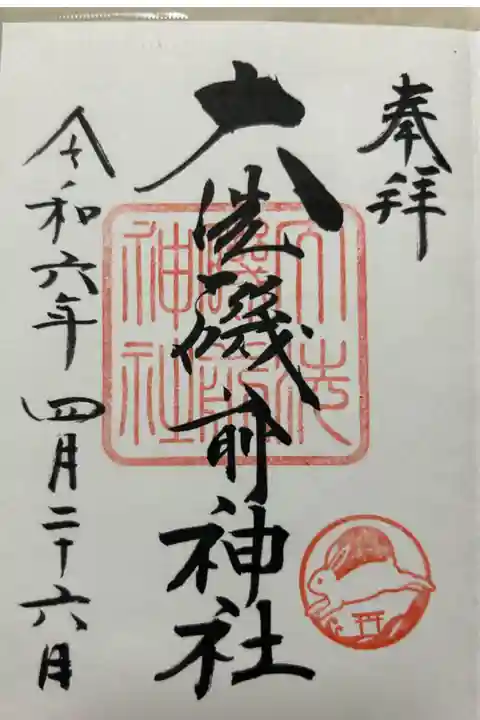 奉拝
大洗磯前神社
令和六年 四月二十六日
大洗
磯前
神社